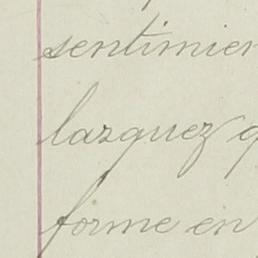 sentimien
lazquez q
forme en